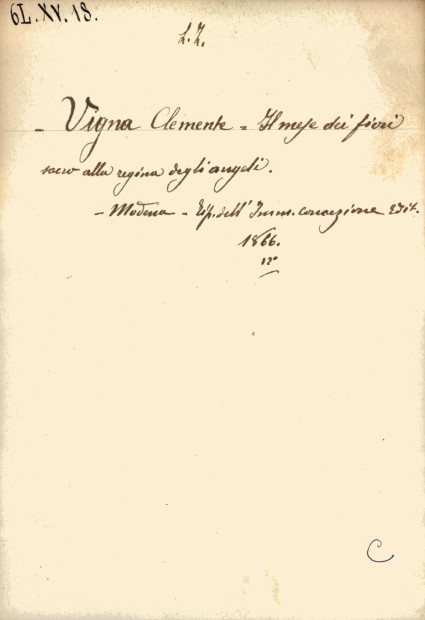 6L. XV. 18.
L. Z.
- Vigna Clemente = Il mese dei fiori
sacro alla regina degli angeli.
- Modena - Tip. dell' Imm. concezione Edit.
1866.
12°
C